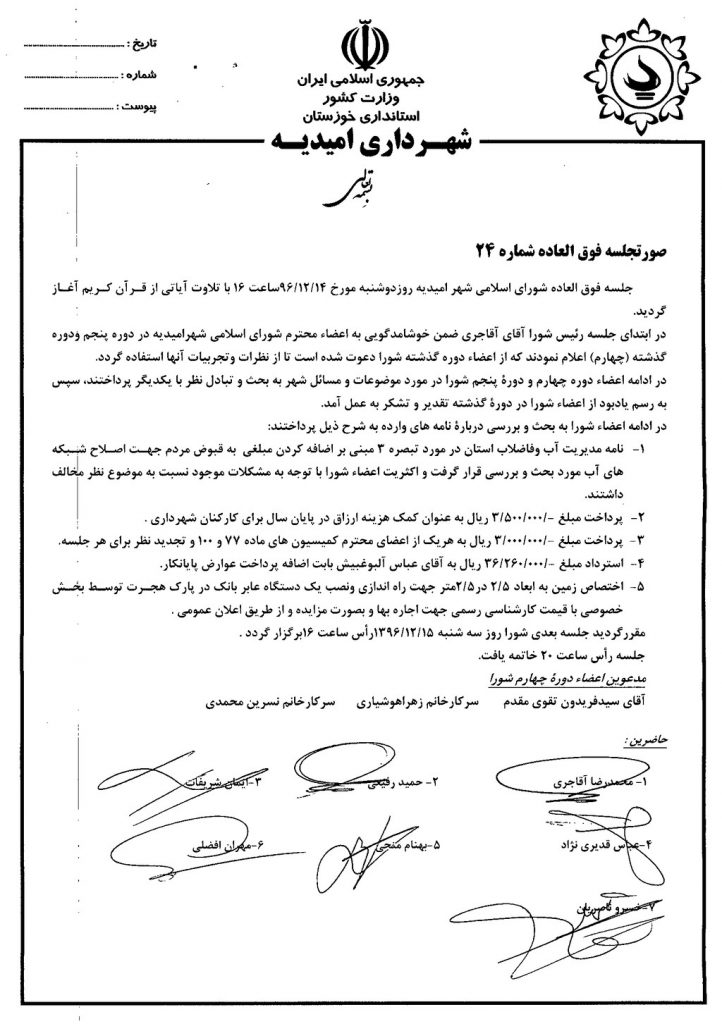 جمهوری اسلامی ایران
وزارت کشور
استانداری خوزستان
شهرداری امیدیه
تاریخ :
شماره :
پیوست :
بسمه تعالی
صورتجلسه فوق العاده شماره ۲۴
جلسه فوق العاده شورای اسلامی شهر امیدیه روزدوشنبه مورخ ۹۶/۱۲/۱۴ساعت ۱۶ با تلاوت آیاتی از قرآن کریم آغاز
گردید.
در ابتدای جلسه رئیس شورا آقای آقاجری ضمن خوشامدگویی به اعضاء محترم شورای اسلامی شهرامیدیه در دوره پنجم ودوره
گذشته (چهارم) اعلام نمودند که از اعضاء دوره گذشته شورا دعوت شده است تا از نظرات وتجربیات آنها استفاده گردد.
در ادامه اعضاء دوره چهارم و دورۀ پنجم شورا در مورد موضوعات و مسائل شهر به بحث و تبادل نظر با یکدیگر پرداختند، سپس
به رسم یادبود از اعضاء شورا در دورۀ گذشته تقدیر و تشکر به عمل آمد.
در ادامه اعضاء شورا به بحث و بررسی دربارۀ نامه های وارده به شرح ذیل پرداختند:
۱- نامه مدیریت آب وفاضلاب استان در مورد تبصره ۳ مبنی بر اضافه کردن مبلغی به قبوض مردم جهت اصلاح شبکه
های آب مورد بحث و بررسی قرار گرفت و اکثریت اعضاء شورا با توجه به مشکلات موجود نسبت به موضوع نظر مخالف
داشتند.
۲- پرداخت مبلغ -/۳/۵۰۰/۰۰۰ ریال به عنوان کمک هزینه ارزاق در پایان سال برای کارکنان شهرداری .
۳- پرداخت مبلغ -/۳/۰۰۰/۰۰۰ ریال به هریک از اعضای محترم کمیسیون های ماده ۷۷ و ۱۰۰ و تجدید نظر برای هر جلسه.
۴- استرداد مبلغ -/۳۶/۲۶۰/۰۰۰ ریال به آقای عباس آلبوغبیش بابت اضافه پرداخت عوارض پایانکار.
۵- اختصاص زمین به ابعاد ۲/۵ در۲/۵متر جهت راه اندازی ونصب یک دستگاه عابر بانک در پارک هجرت توسط بخش
خصوصی با قیمت کارشناسی رسمی جهت اجاره بها و بصورت مزایده و از طریق اعلان عمومی .
مقررگردید جلسه بعدی شورا روز سه شنبه ۱۳۹۶/۱۲/۱۵رأس ساعت ۱۶برگزار گردد .
جلسه رأس ساعت ۲۰ خاتمه یافت.
مدعوین اعضاء دورۀ چهارم شورا
آقای سیدفریدون تقوی مقدم سرکارخانم زهراهوشیاری سرکارخانم نسرین محمدی
حاضرین :
۱- محمدرضا آقاجری ۲- حمید رفیعی ۳-ایمان شریفات
۴-عباس قدیری نژاد ۵-بهنام منجی ۶-مهران افضلی
۷-خسرو